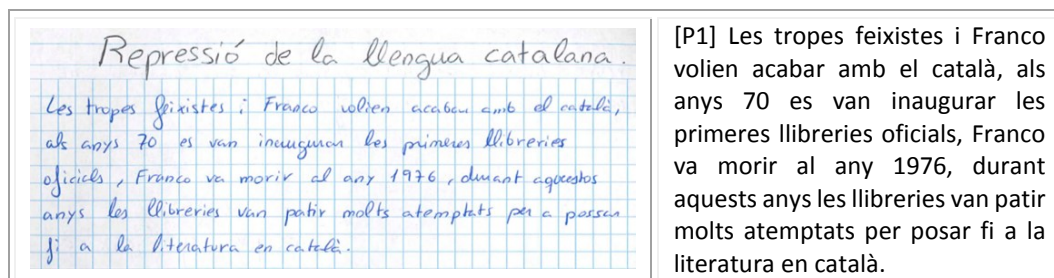 Repressió de la llengua catalana.
Les tropes feixistes i Franco volien acabar amb el català,
als anys 70 es van inaugurar les primeres llibreries
oficials, Franco va morir al any 1976, durant aquestos
anys les llibreries van patir molts atemptats per a possar
fi a la literatura en català.
[P1] Les tropes feixistes i Franco
volien acabar amb el català, als
anys 70 es van inaugurar les
primeres llibreries oficials, Franco
va morir al any 1976, durant
aquests anys les llibreries van patir
molts atemptats per posar fi a la
literatura en català.